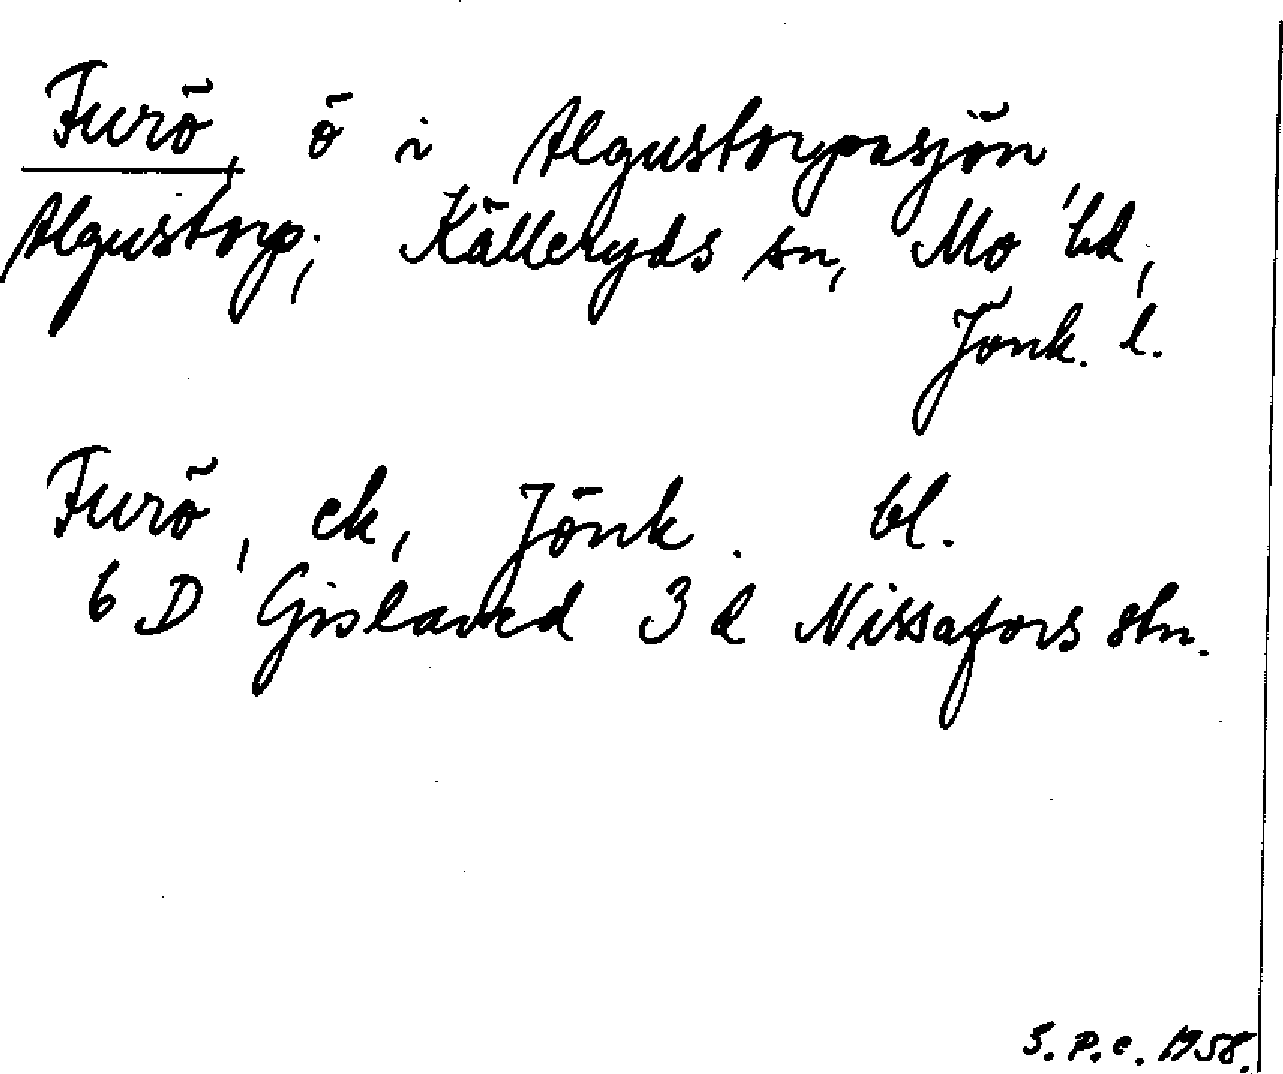 Furö, ö i Algustorpasjön
Algustorp; Källeryds sn, Mo hd,
Jönk. l.
Furö, ek, Jönk. bl.
6 D Gislaved 3 d Nissafors stn.
S.P.C. 1958.